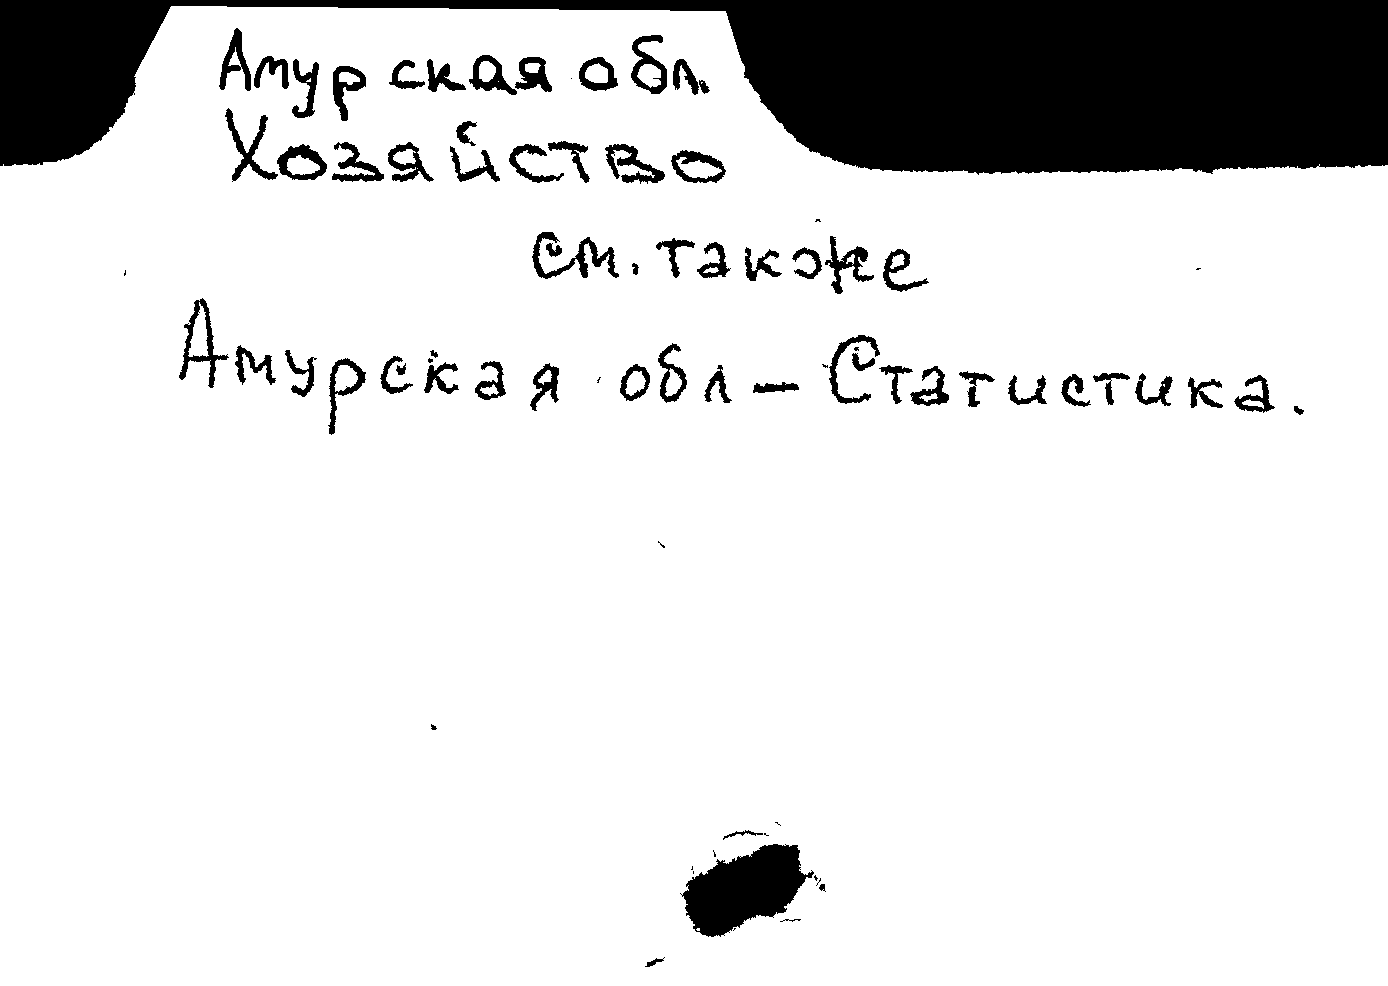 Амурская обл.
Хозяйство
см. также
Амурская обл – Статистика.